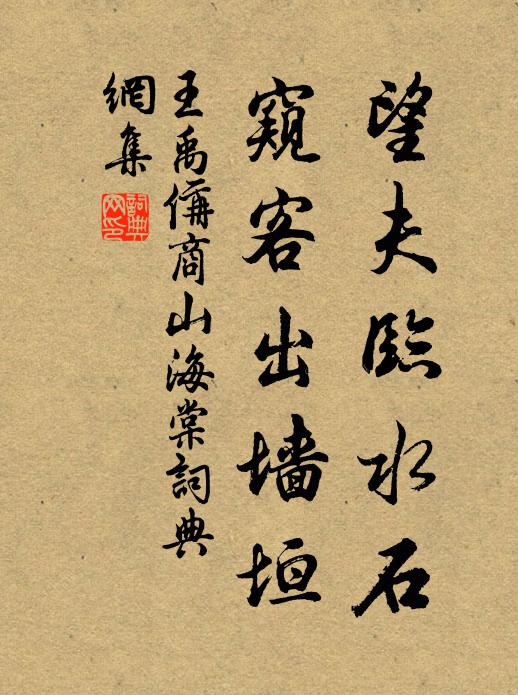 望夫臨水石
窺客出墙垣
王禹偁商山海棠詞典
網集
詞典
网印